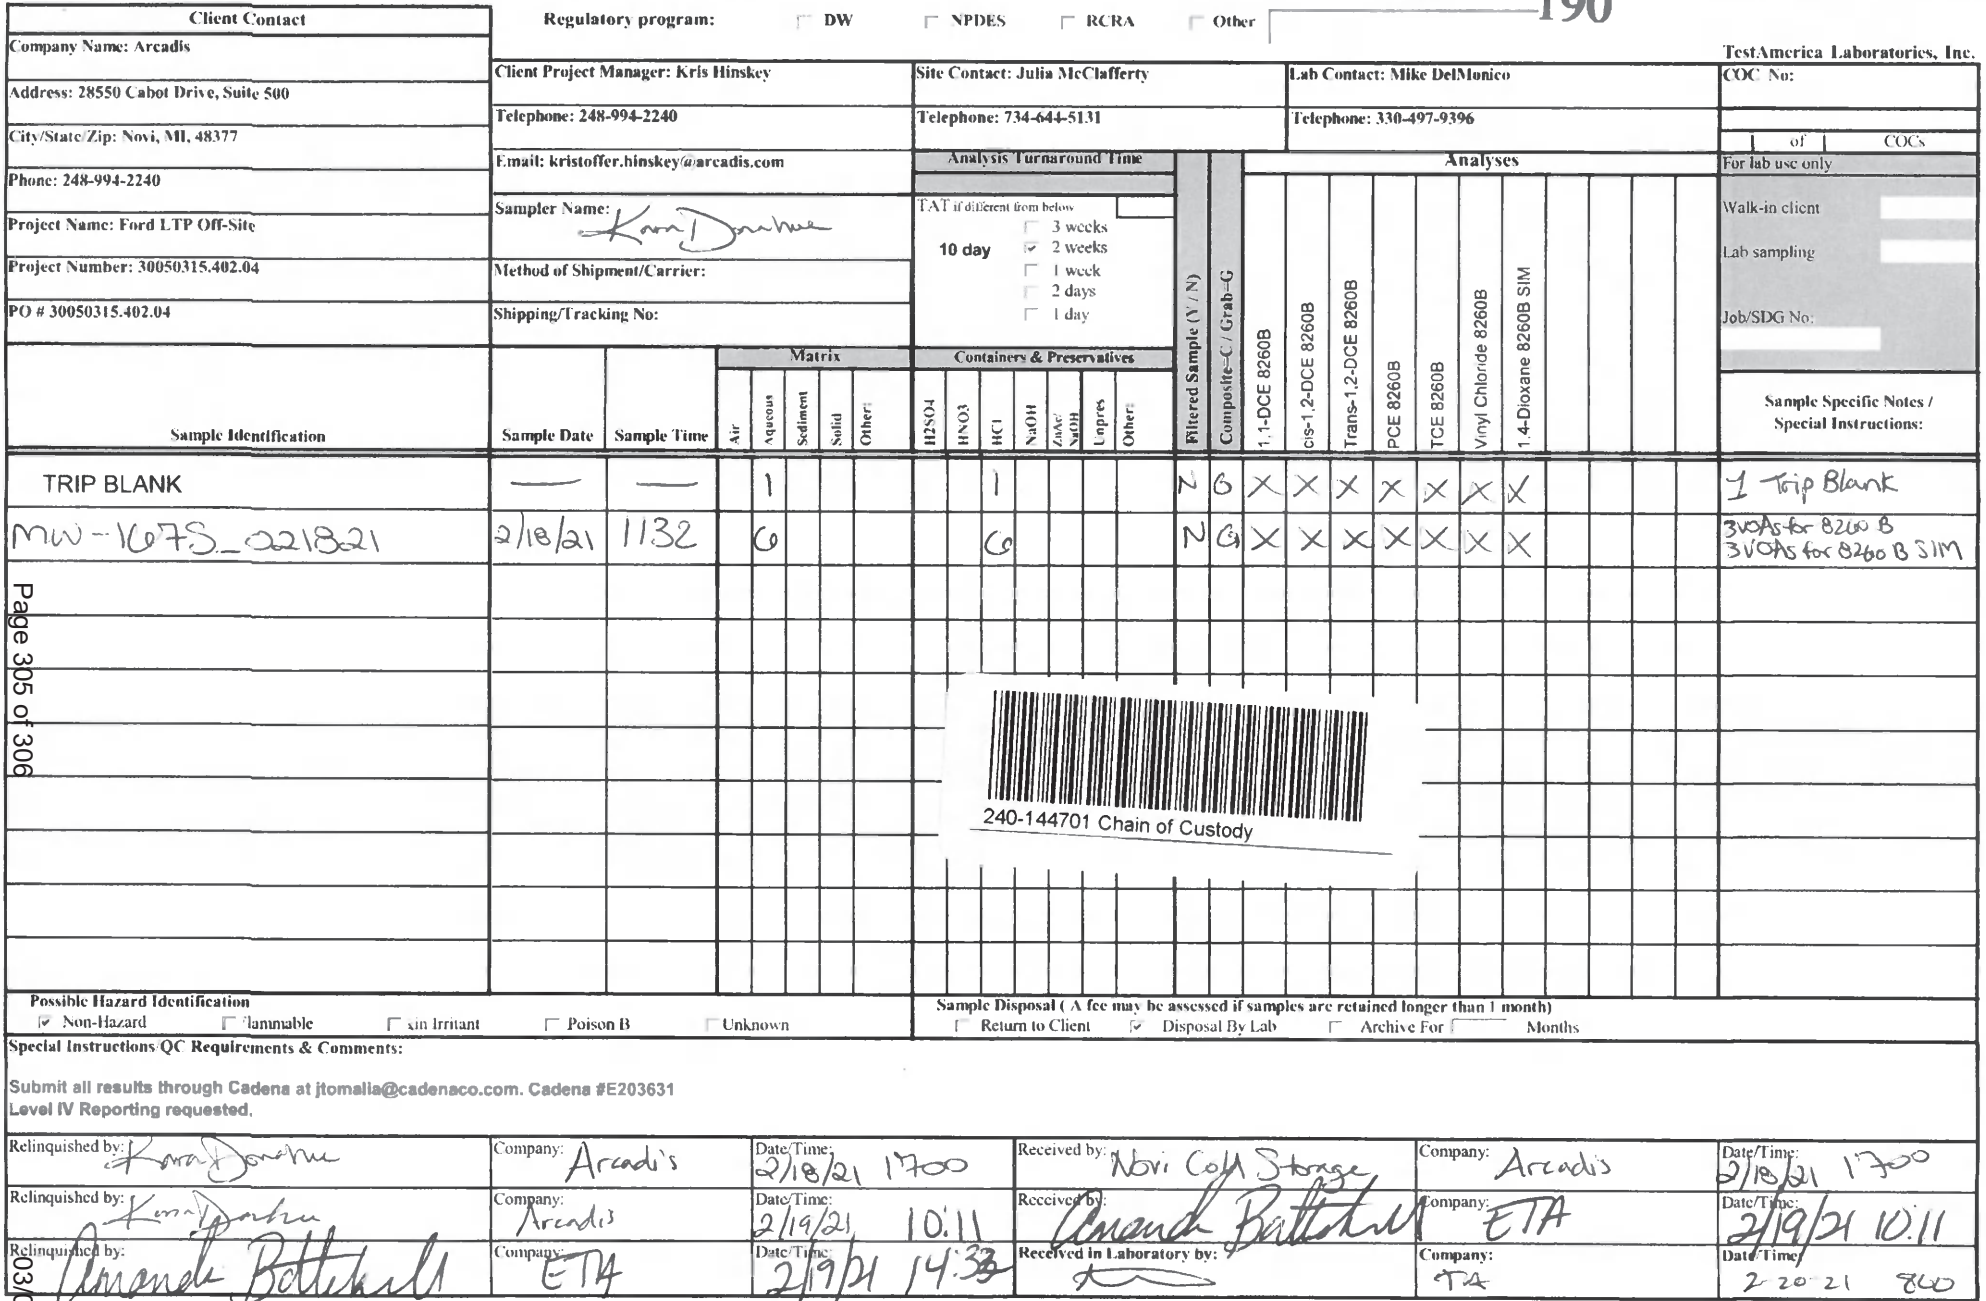 190
TestAmerica Laboratories, Inc.
Client Contact
Regulatory program: DW NPDES RCRA Other
Company Name: Arcadis
Address: 28550 Cabot Drive, Suite 500
City/State/Zip: Novi, MI, 48377
Phone: 248-994-2240
Project Name: Ford LTP Off-Site
Project Number: 30050315.402.04
PO # 30050315.402.04
Client Project Manager: Kris Hinskey
Telephone: 248-994-2240
Email: kristoffer.hinskey@arcadis.com
Sampler Name: Kara Donahue
Method of Shipment/Carrier:
Shipping/Tracking No:
Site Contact: Julia McClafferty
Telephone: 734-644-5131
Lab Contact: Mike DelMonico
Telephone: 330-497-9396
COC No:
of COCs
Analysis Turnaround Time
TAT if different from below
10 day
3 weeks
2 weeks
1 week
2 days
1 day
Analyses
For lab use only
Walk-in client
Lab sampling
Job/SDG No:
Sample Identification
Sample Date
Sample Time
Matrix
Air
Aqueous
Sediment
Solid
Other:
Containers & Preservatives
H2SO4
HNO3
HCl
NaOH
ZnAc/
NaOH
Unpres
Other:
Filtered Sample (Y / N)
Composite=C / Grab=G
1,1-DCE 8260B
cis-1,2-DCE 8260B
Trans-1,2-DCE 8260B
PCE 8260B
TCE 8260B
Vinyl Chloride 8260B
1,4-Dioxane 8260B SIM
Sample Specific Notes /
Special Instructions:
TRIP BLANK — — 1 1 N G X X X X X X X 1 Trip Blank
MW-167S_021821 2/18/21 1132 6 6 N G X X X X X X X 3 VOAs for 8260 B
3 VOAs for 8260 B SIM
Page 305 of 306
240-144701 Chain of Custody
Possible Hazard Identification
Non-Hazard lammable kin Irritant Poison B Unknown
Sample Disposal ( A fee may be assessed if samples are retained longer than 1 month)
Return to Client Disposal By Lab Archive For Months
Special Instructions/QC Requirements & Comments:
Submit all results through Cadena at jtomalia@cadenaco.com. Cadena #E203631
Level IV Reporting requested.
Relinquished by: Kara Donahue Company: Arcadis Date/Time: 2/18/21 1700 Received by: Novi Cold Storage Company: Arcadis Date/Time: 2/18/21 1700
Relinquished by: Kara Donahue Company: Arcadis Date/Time: 2/19/21 10:11 Received by: Amanda Company: ETA Date/Time: 2/19/21 10:11
Relinquished by: Amanda Company: ETA Date/Time: 2/19/21 14:33 Received in Laboratory by: Company: TA Date/Time: 2-20-21 800
03/0